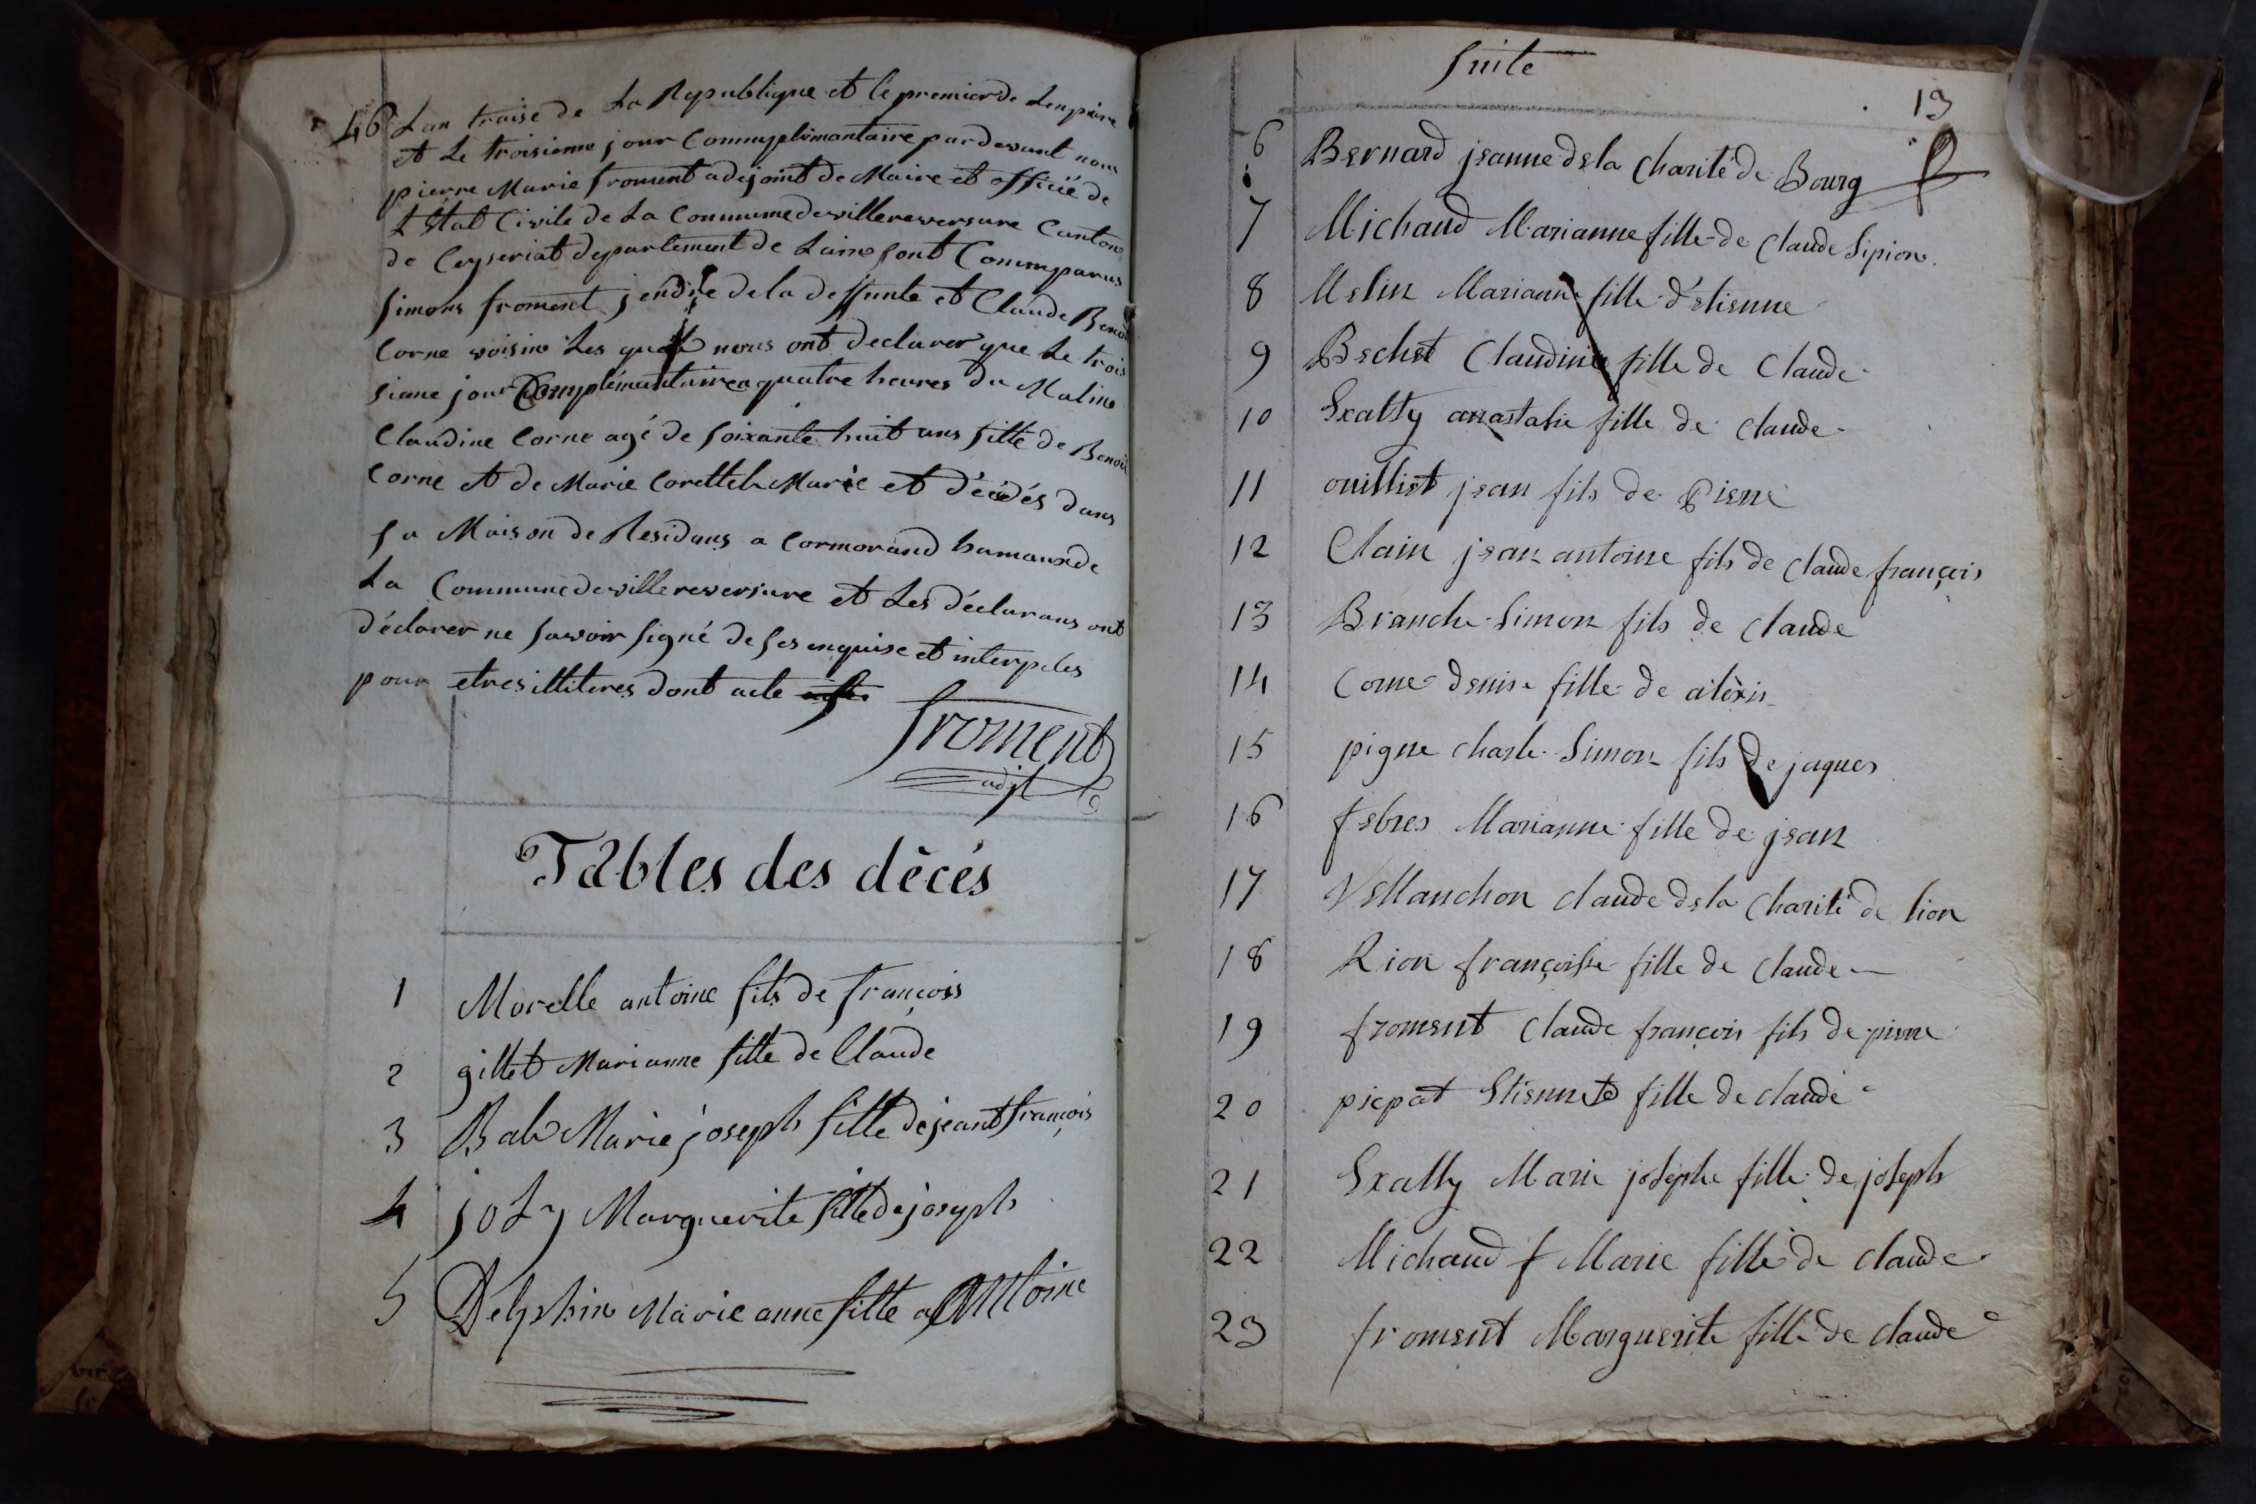 46 Lan traise de La Republique et le premier de Lempire
et Le troisieme jour Commplémantaire pardevant nous
pierre Marie froment adejoint de Maire et officié de
L'Etat Civile de La Commune de villereversure Canton
de Ceyseriat departement de Lain sont Commparus
Simons froment jendre de la deffunte et Claude Benoi
Corne voisin Les quels nous ont declarer que Le trois
sieme jour Complémantaire a quatre heures du Matin
Claudine Corne agé de soixante huit ans fille de Benoi
Corne et de Marie Corettet Marie et décédés dans
sa Maison de Residans a Cormorand hamaux de
La Commune de villereversure et Les déclarans ont
déclarer ne savoir signé de ses enquise et interpeles
pour etres illiteres dont acte
froment
adjt
Tables des dècés
1 Morelle antoine fils de françois
2 gillet Marianne fille de Claude
3 Bab Marie joseph fille de jeant françois
4 joly Marguerite fille de joseph
5 Delphin Marie anne fille a Antoine
Suite
13
6 Bernard jeanne de la Charité de Bourg
7 Michaud Marianne fille de Claude Sipion
8 Melin Marianne fille d'etienne
9 Bechet Claudine fille de Claude
10 Exatty anastasie fille de Claude
11 ouilliet jean fils de Pierre
12 Clain jean antoine fils de Claude françois
13 Branche Simon fils de Claude
14 Corne denise fille de alèxis
15 pigne charle Simon fils de jaques
16 febres Marianne fille de jean
17 Vellanchon claude de la Charité de lion
18 Rion françoisse fille de Claude
19 froment Claude françois fils de pierre
20 piepat Etiennete fille de claude
21 Exatty Marie josephe fille de joseph
22 Michaud f Marie fille de claude
23 froment Marguerite fille de claude